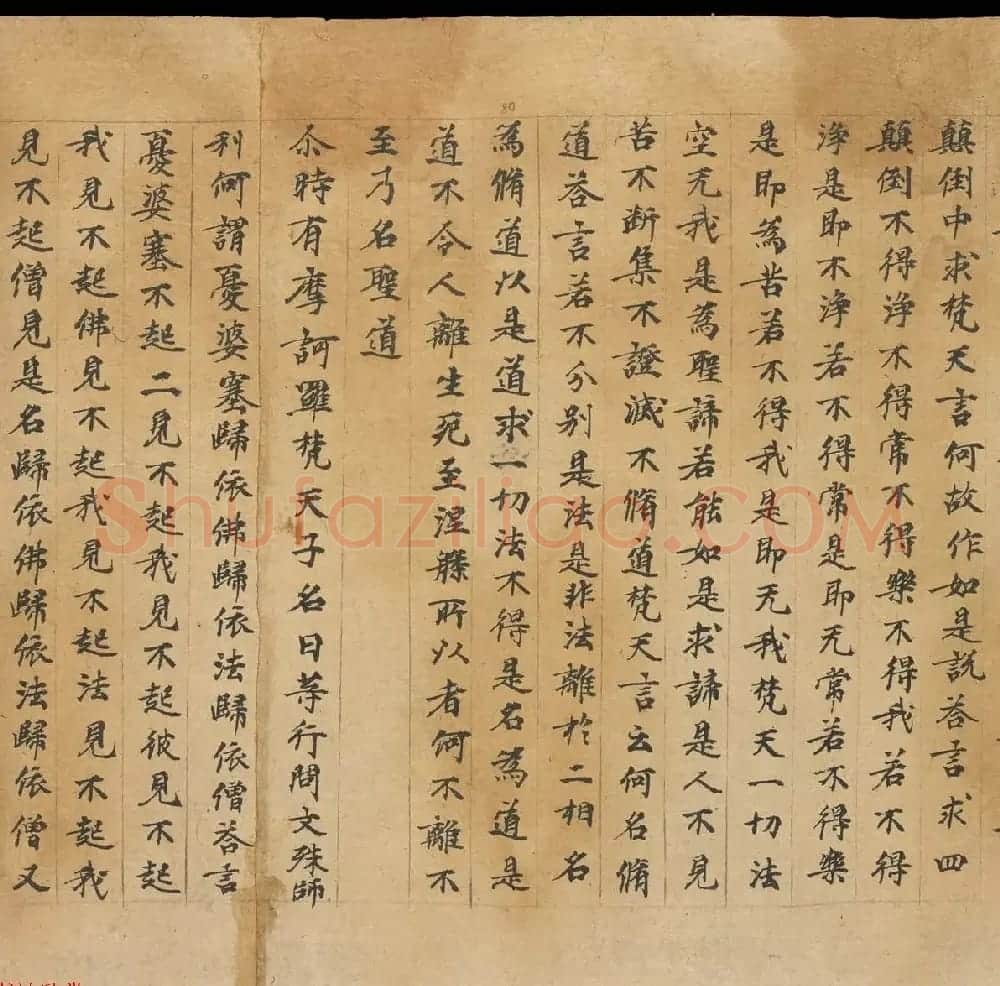 顛倒中求梵天言何故作如是說荅言求四
顛倒不得淨不得常不得樂不得我若不得
淨是即不淨若不得常是即无常若不得樂
是即為苦若不得我是即无我梵天一切法
空无我是為聖諦若能如是求諦是人不見
苦不断集不證滅不脩道梵天言云何名脩
道荅言若不分别是法是非法離於二相名
為脩道以是道求一切法不得是名為道是
道不令人離生死至涅槃所以者何不離不
至乃名聖道
尒時有摩訶羅梵天子名曰等行問文殊師
利何謂憂婆塞歸依佛歸依法歸依僧荅言
憂婆塞不起二見不起我見不起彼見不起
我見不起佛見不起我見不起法見不起我
見不起僧見是名歸依佛歸依法歸依僧又
80
Shufaziliao.COM